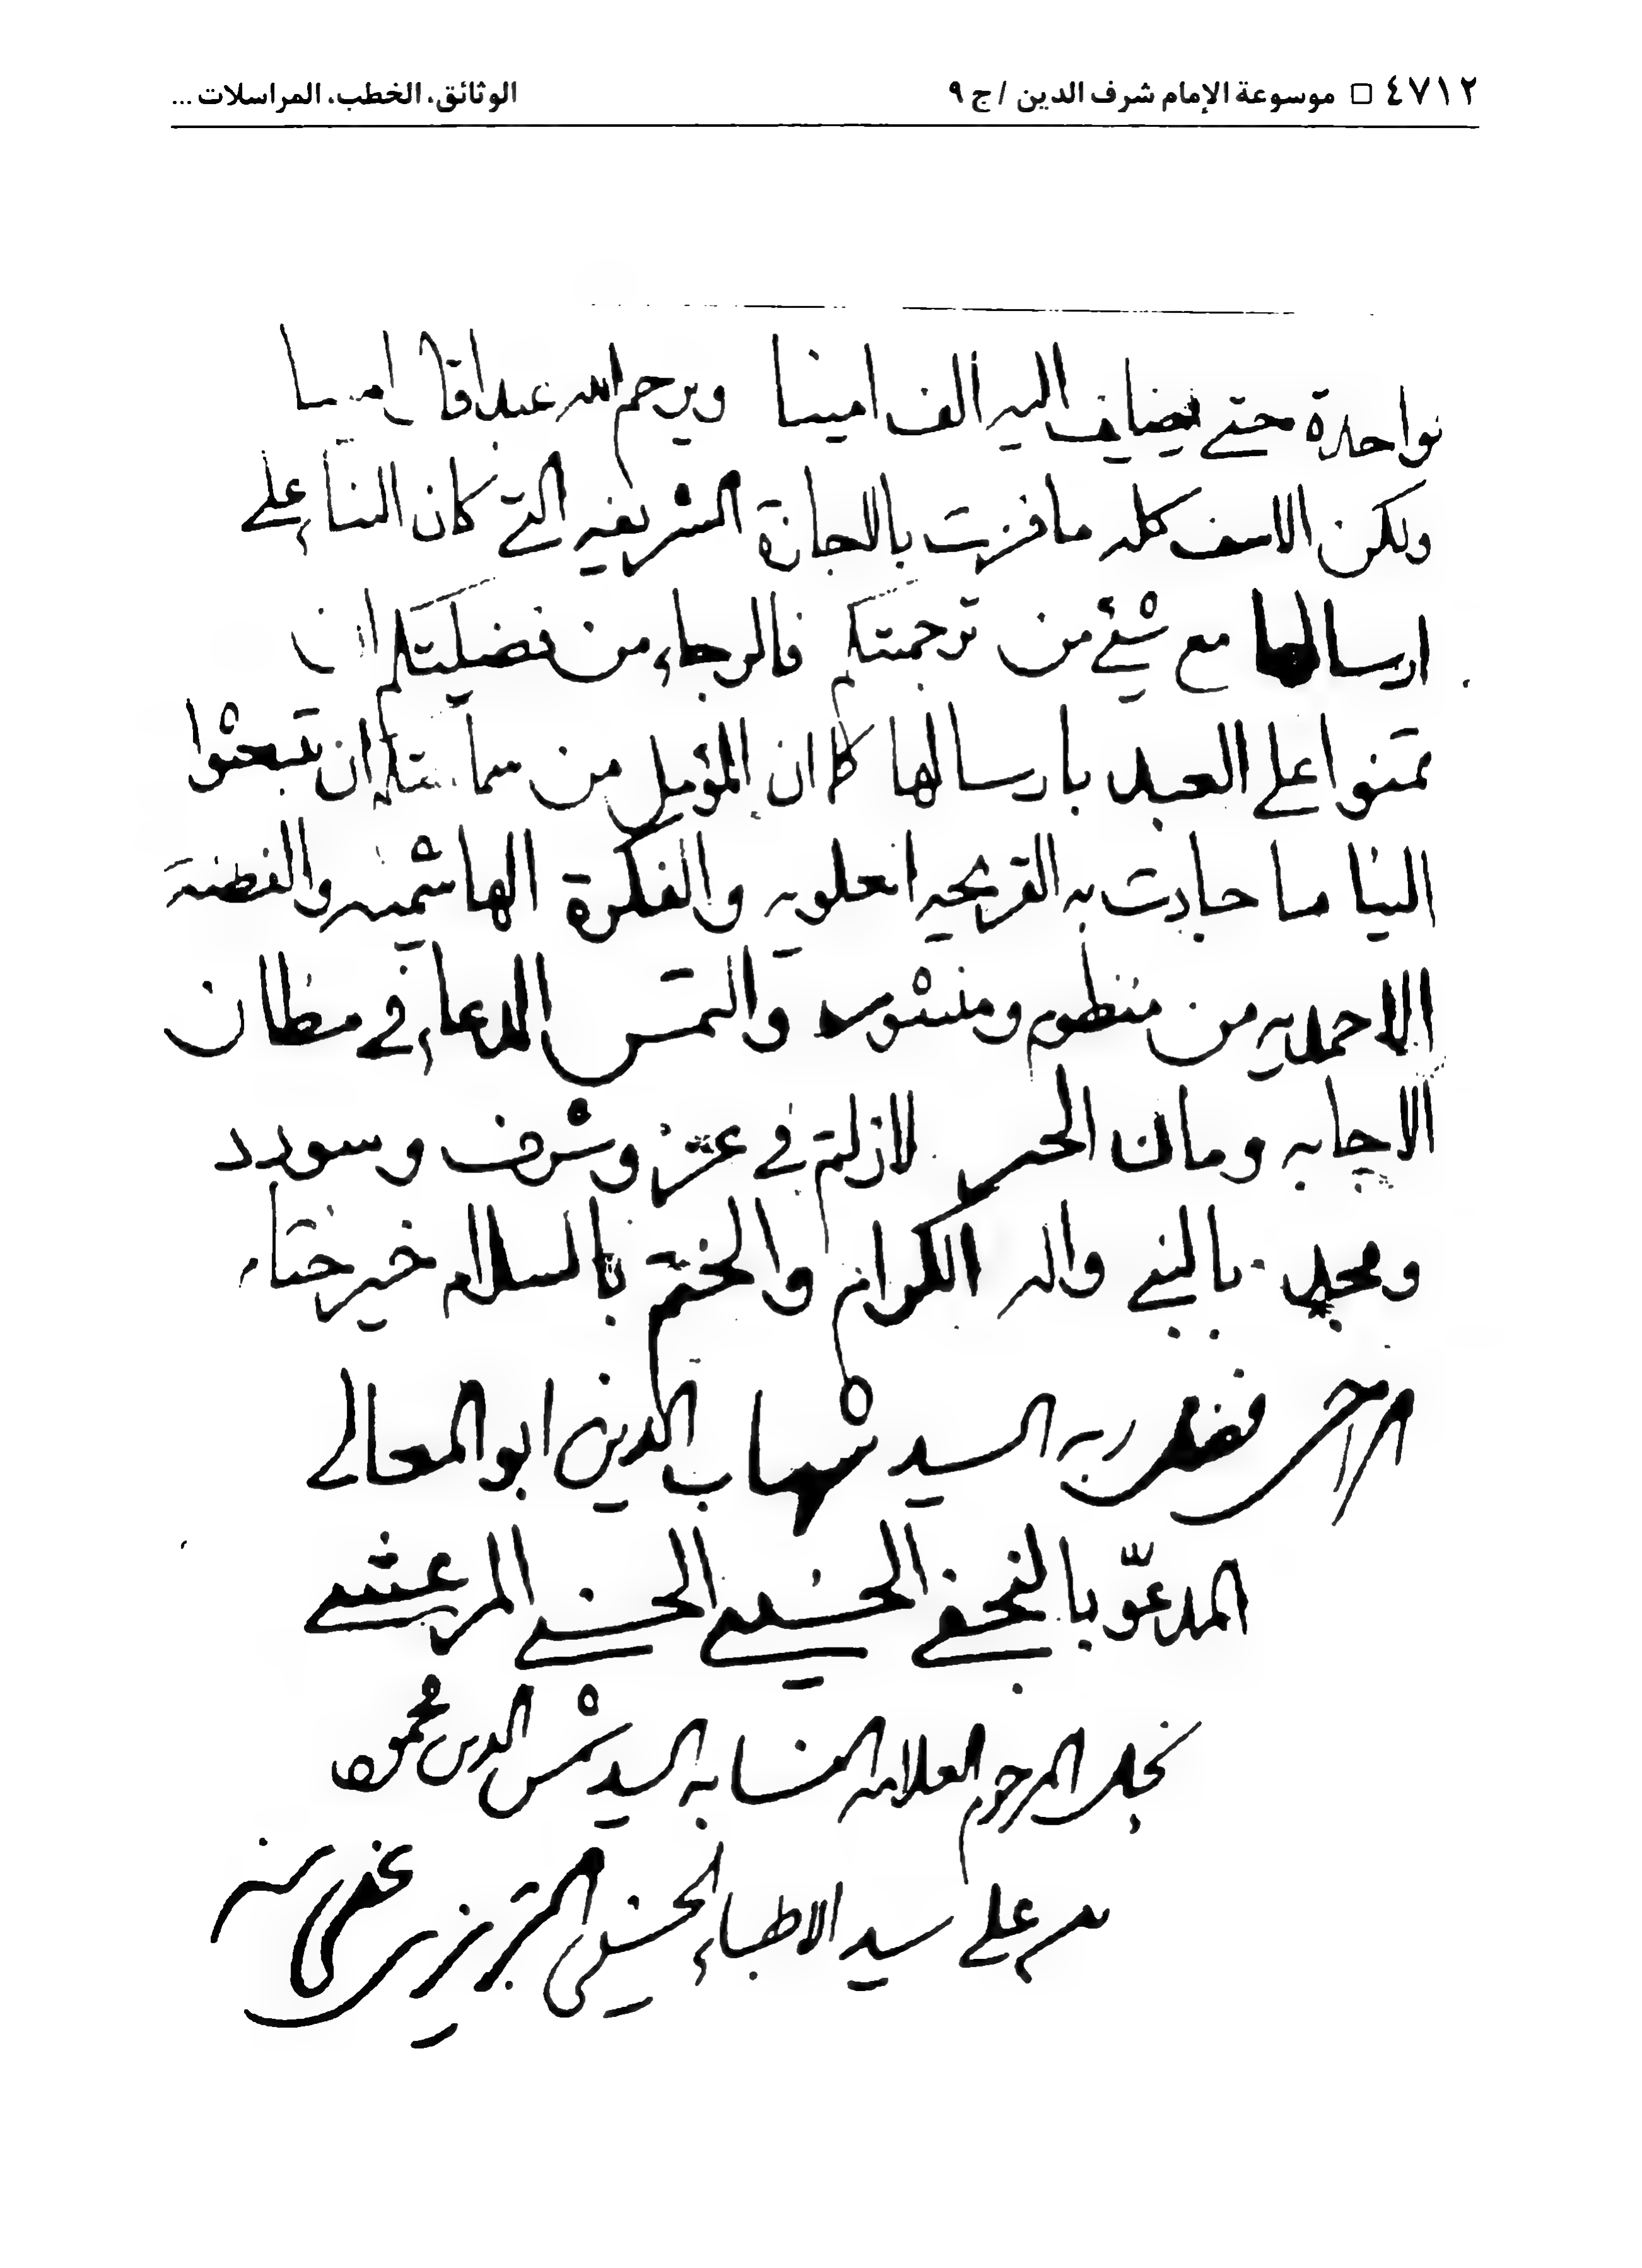 ٤٧١٢ □ موسوعة الإمام شرف الدين / ج ٩
الوثائق، الخطب، المراسلات ...
بواحدة حتى يضاف اليه الف امينا ويرحم الله عبدا قال امينا
ولكن الاسف كله ما فزت بالاجازة الشريفه التي كان البناء على
ارسالها مع شئ من ترجمتكم فالرجاء من فضيلتكم ان
تمنوا على العبد بارسالها كما ان المؤمل من ان تبعثوا
الينا ما جادت به القريحه العلويه والفكرة الهاشميه والفطنة
الاحمديه من منظوم ومنثور والتمس الدعاء في مظان
الاجابه ومان الحر لازلتم في عز وشرف وسودد
ومجد بالنبي واله الكرام والختم بالسلام خير ختام
فضل ربه السيد شهاب الدين ابو المعالي
المدعوّ بالنجفي الحسيني الحسني المرعشي
نجل المرحوم العلامه النسابه السيد شمس الدين محمود
على سيد الاطباء الحسيني التبريزي عفى عنه